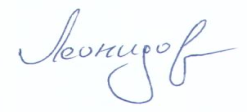 Леонидов